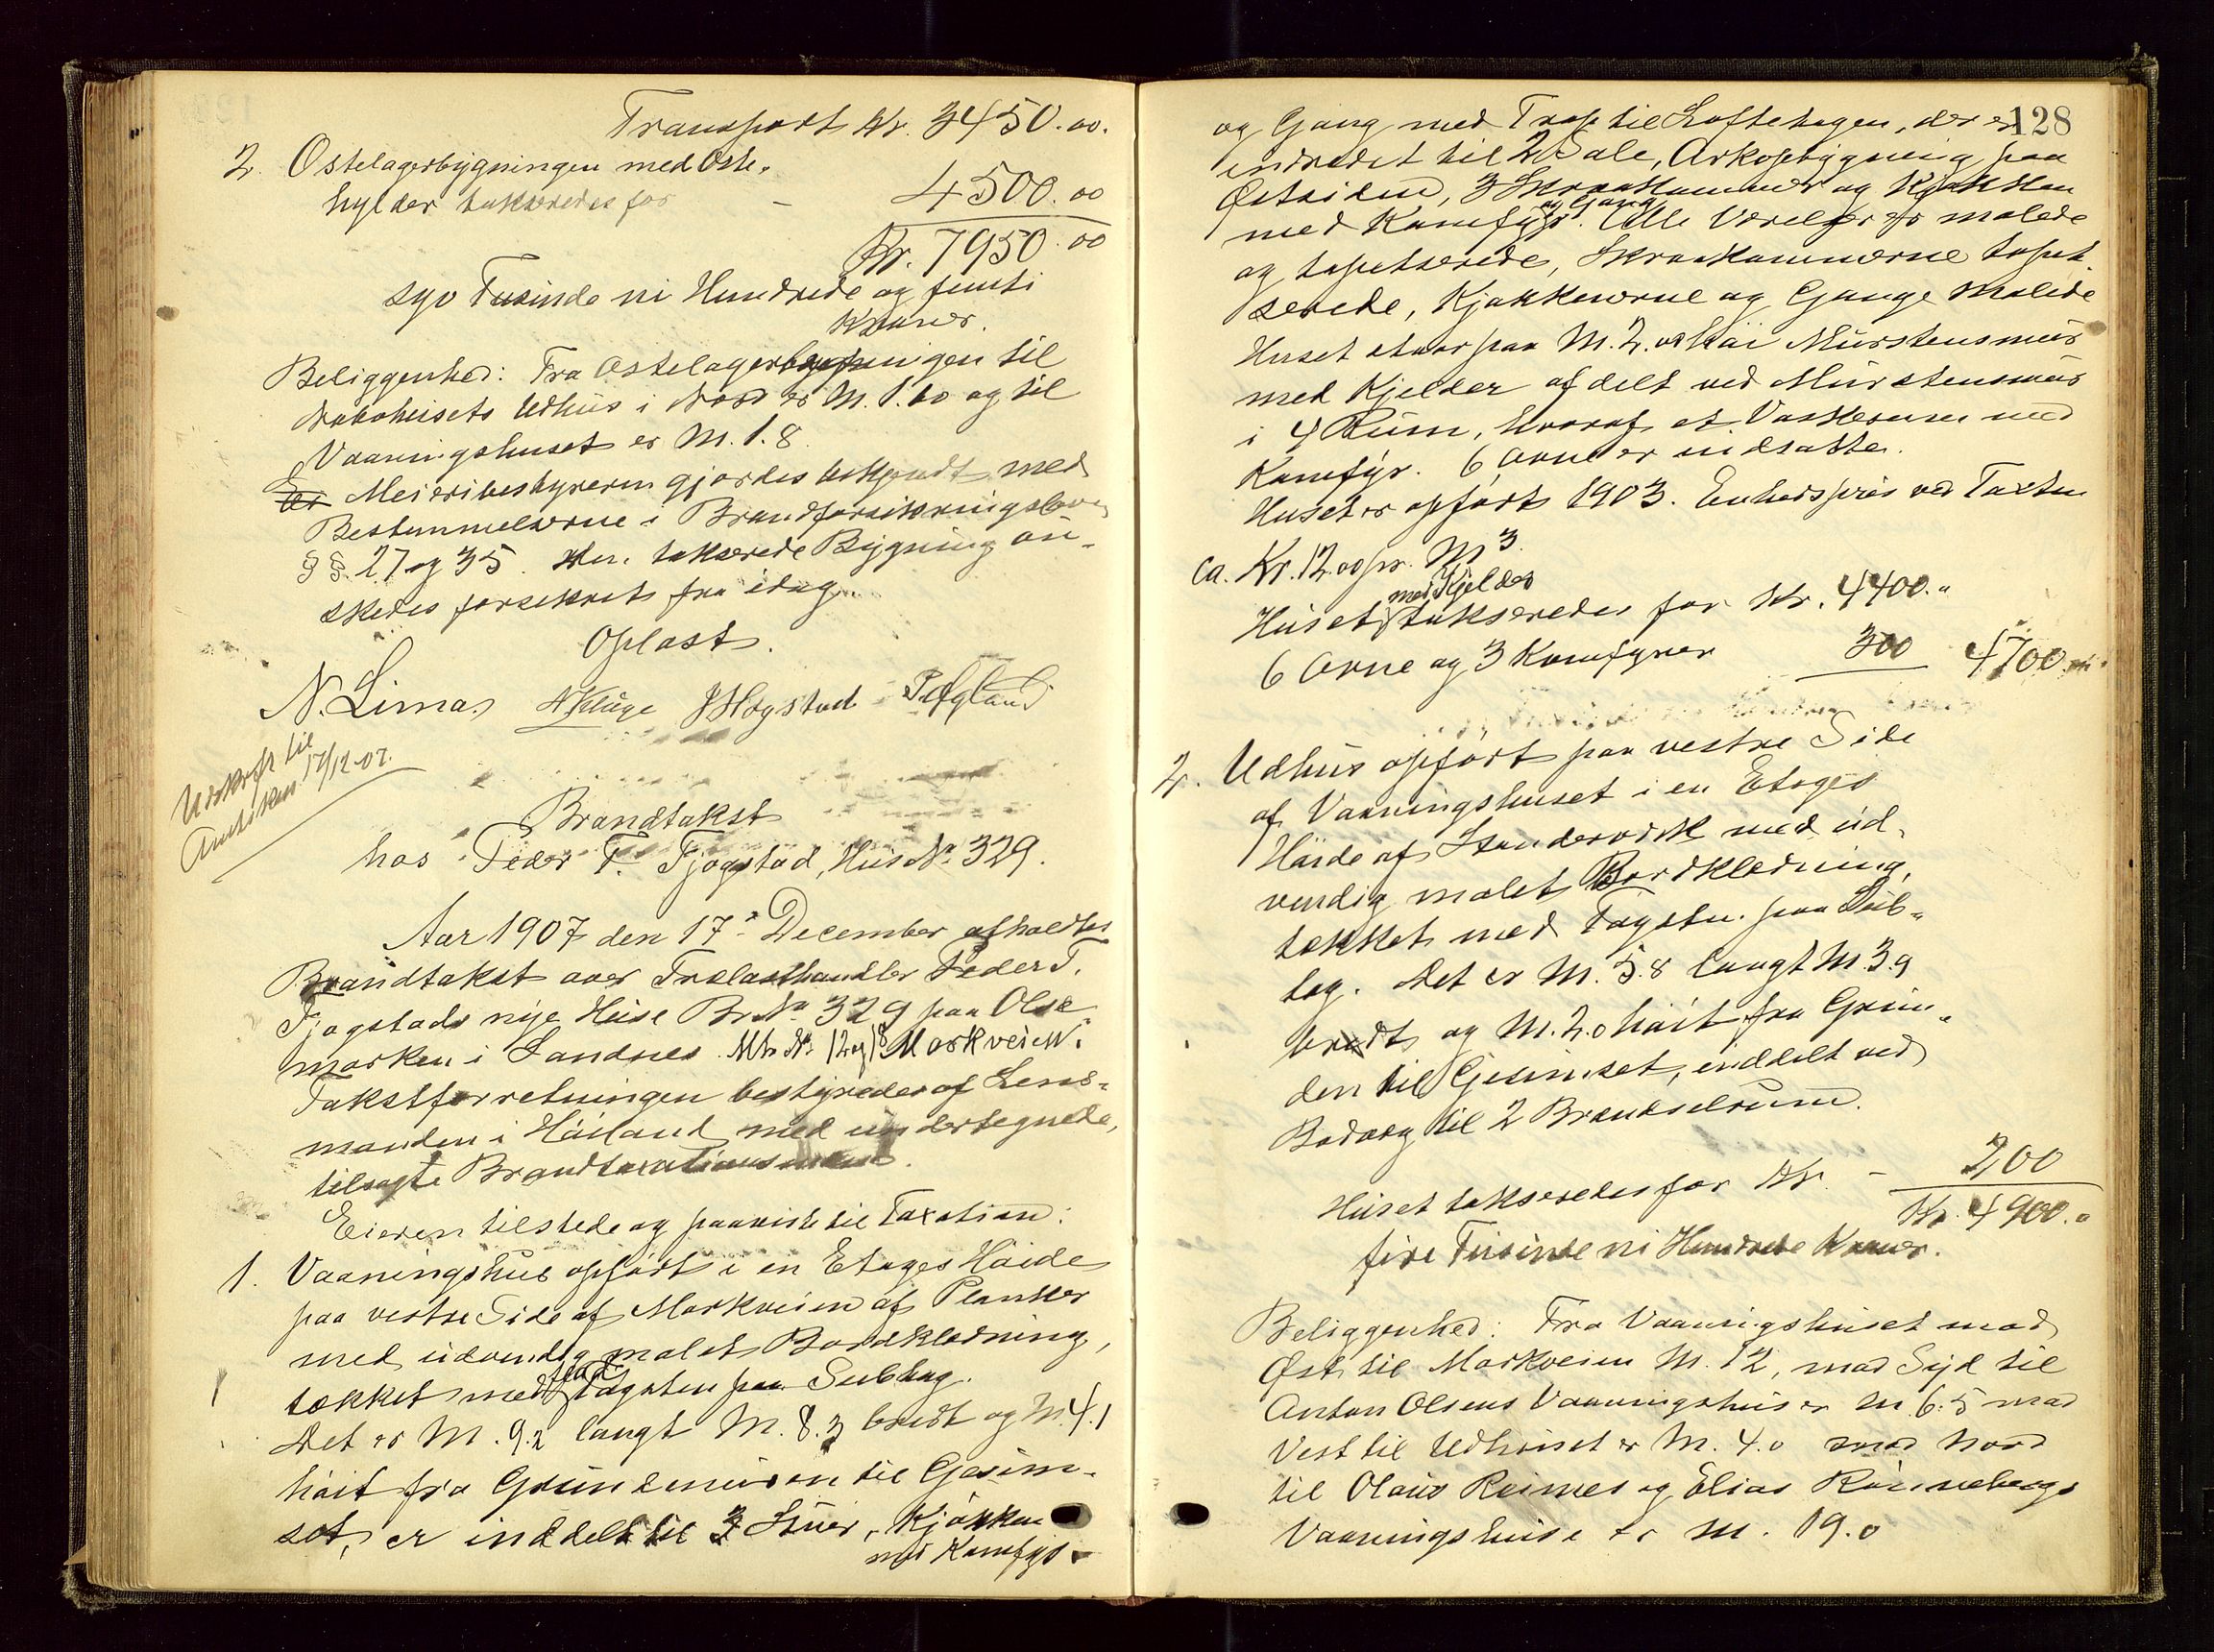 Transport Kr. 3450.00.
2. Ostelagerbygningen med Oste-
hylder takseredes for - 4500.00
Kr. 7950.00
syv Tusinde ni Hundrede og femti
Kroner.
Beliggenhed: Fra Ostelagerbygningen til
Nabohusets Udhus i Nord er M. 1.60 og til
Vaaningshuset er M. 1.8.
Meieribestyreren gjordes bekjendt med
Bestemmelserne i Brandforsikringsloven
§§ 27 og 35. Den takserede Bygning øn-
skedes forsikret fra idag.
Oplæst.
N. Lima A Kluge J Høgstad P Aglaud
Udskrift til
Amtskass 17/12-07.
Brandtakst
hos Peder T. Tjogstad, Hus No 329.
Aar 1907 den 17de December afholdtes
Brandtakst over Trelasthandler Peder T.
Tjogstads nye Huse Br. No 329 paa Olse
marken i Sandnes. Mt No 12 og 18 Markveien.
Takstforretningen bestyredes af Lens-
manden i Høiland med undertegnede,
tilsagte Brandtaxationsmænd.
Eieren tilstede og paaviste til Taxation:
1. Vaaningshus opført i en Etages Høide
paa vestre Side af Markveien af Planker
med udvendig malet Bordklædning,
tækket med Tagsten paa Subtag.
Det er M. 9.2 langt M. 8.3 bredt og M. 4.1
høit fra Grundmuren til Gesim-
set, er inddelt til 3 Stuer, Kjøkken
med Komfyr
128
og Gang med Trap til Loftetagen, der er
indredet til 2 Sale, Arkopbygning paa
Østsiden, 3 Skraakammer og Kjøkken
med Komfyr og Gang. Alle Værelser er malede
og tapetserede, Skraakammerne tapet-
serede, Kjøkkenerne og Gange malede
Huset staar paa M. 2.0 høi Murstensmur
med Kjelder afdelt ved Murstensmur
i 4 Rum, hvoraf et Vaskerum med
Komfyr. 6 Ovne er indsatte.
Huset er opført 1903. Enhedspris ved Taxten
ca. Kr. 12.00 pr. M3.
Huset med Kjelder takseredes for Kr. 4400.
6 Ovne og 3 Komfyrer 300 4700
2. Udhus opført paa vestre Side
af Vaaningshuset i en Etages
Høide af Standerværk med ud-
vendig malet Bordklædning,
tækket med Tagsten paa Sub-
tag. Det er M. 5.8 langt M. 3.9
bredt og M. 2.0 høit fra Grun-
den til Gesimset, inddelt ved
Bordvæg til 2 Brændselrum.
Huset takseredes for Kr. - 200
Kr. 4900.
fire Tusinde ni Hundrede Kroner.
Beliggenhed: Fra Vaaningshuset mod
Øst til Markveien M. 12, mod Syd til
Anton Olsens Vaaningshus er M. 6.5 mod
Vest til Udhuset er M. 4.0 mod Nord
til Olaus Reimes og Elias Rønnebergs
Vaaningshuse er M. 19.0